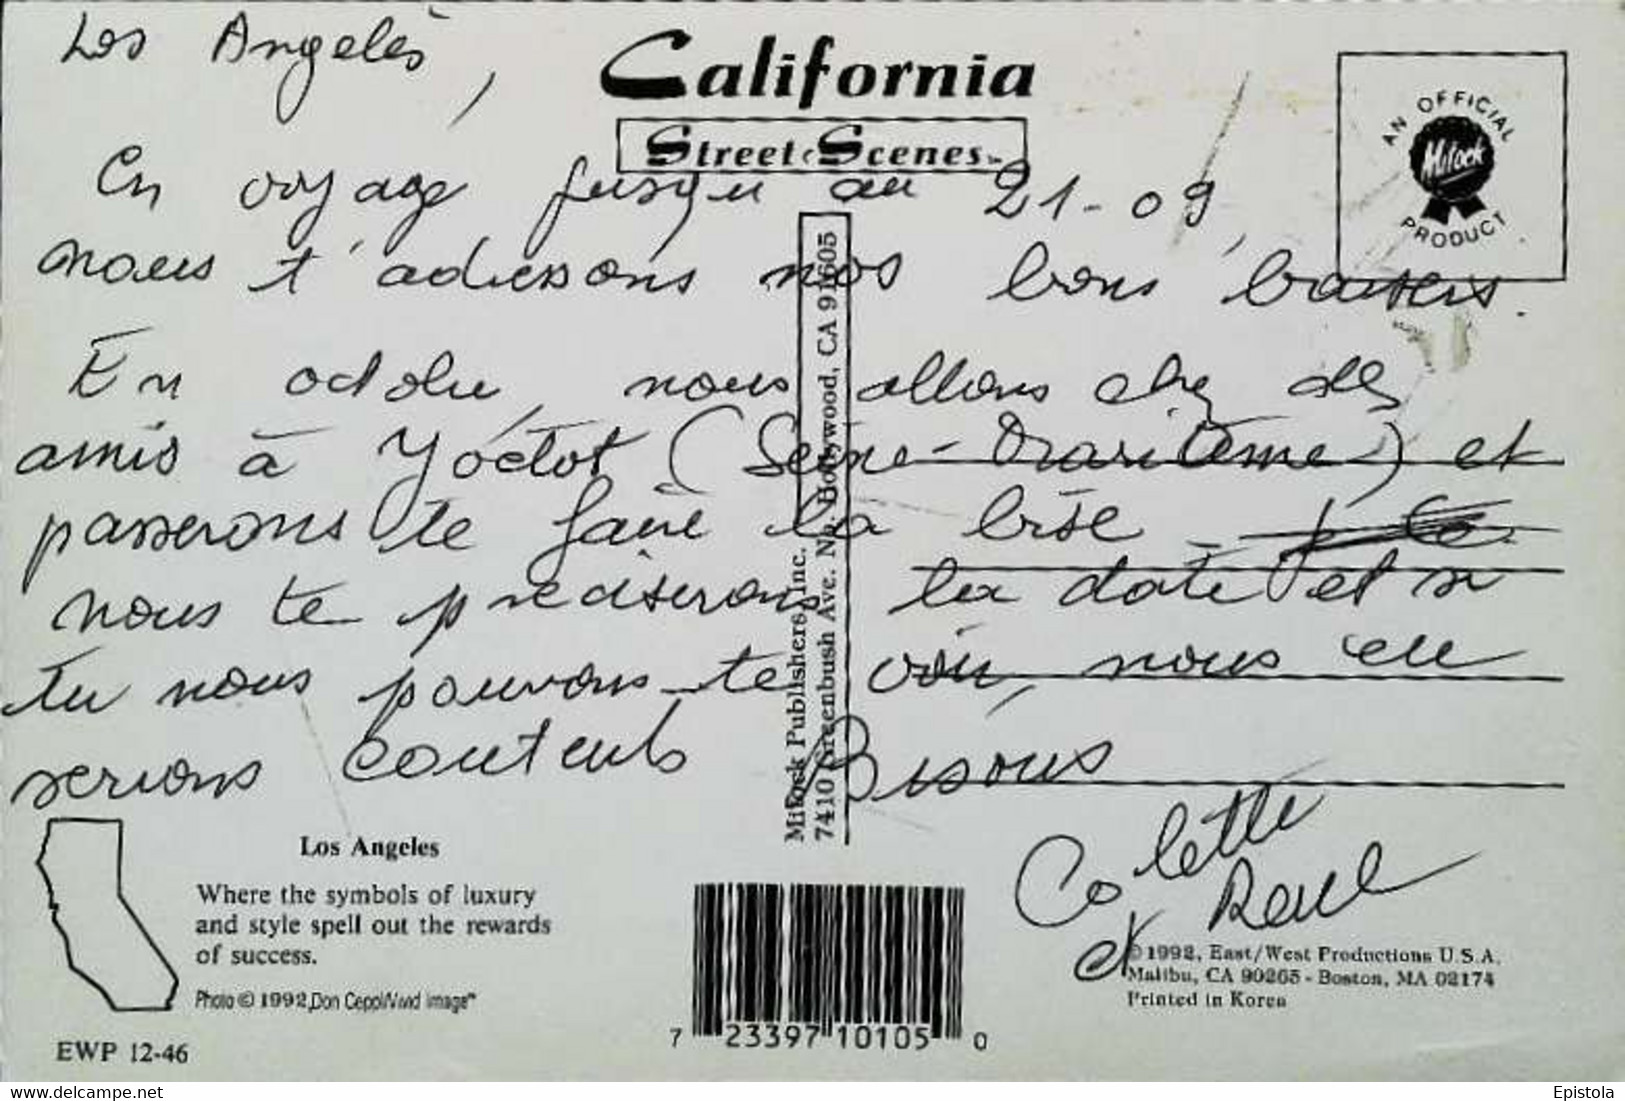 Los Angelès,
California
Street Scenes
AN OFFICIAL
Mitock
PRODUCT
En voyage jusqu'au 21-09,
nous t'adressons nos bons baisers.
En octobre, nous allons chez des
amis à Yvetot (Seine-Maritime) et
passerons te faire la bise -
nous te préciserons la date et si
tu nous pouvons te voir, nous en
serions contents Bisous
Colette
et René
Mitock Publishers, Inc.
7410 Greenbush Ave. No. Hollywood, CA 91605
Los Angeles
Where the symbols of luxury
and style spell out the rewards
of success.
Photo © 1992, Don Ceppi/Vivid Image™
EWP 12-46
7 23397 10105 0
© 1992, East/West Productions U.S.A.
Malibu, CA 90265 - Boston, MA 02174
Printed in Korea
www.delcampe.net
Epistola